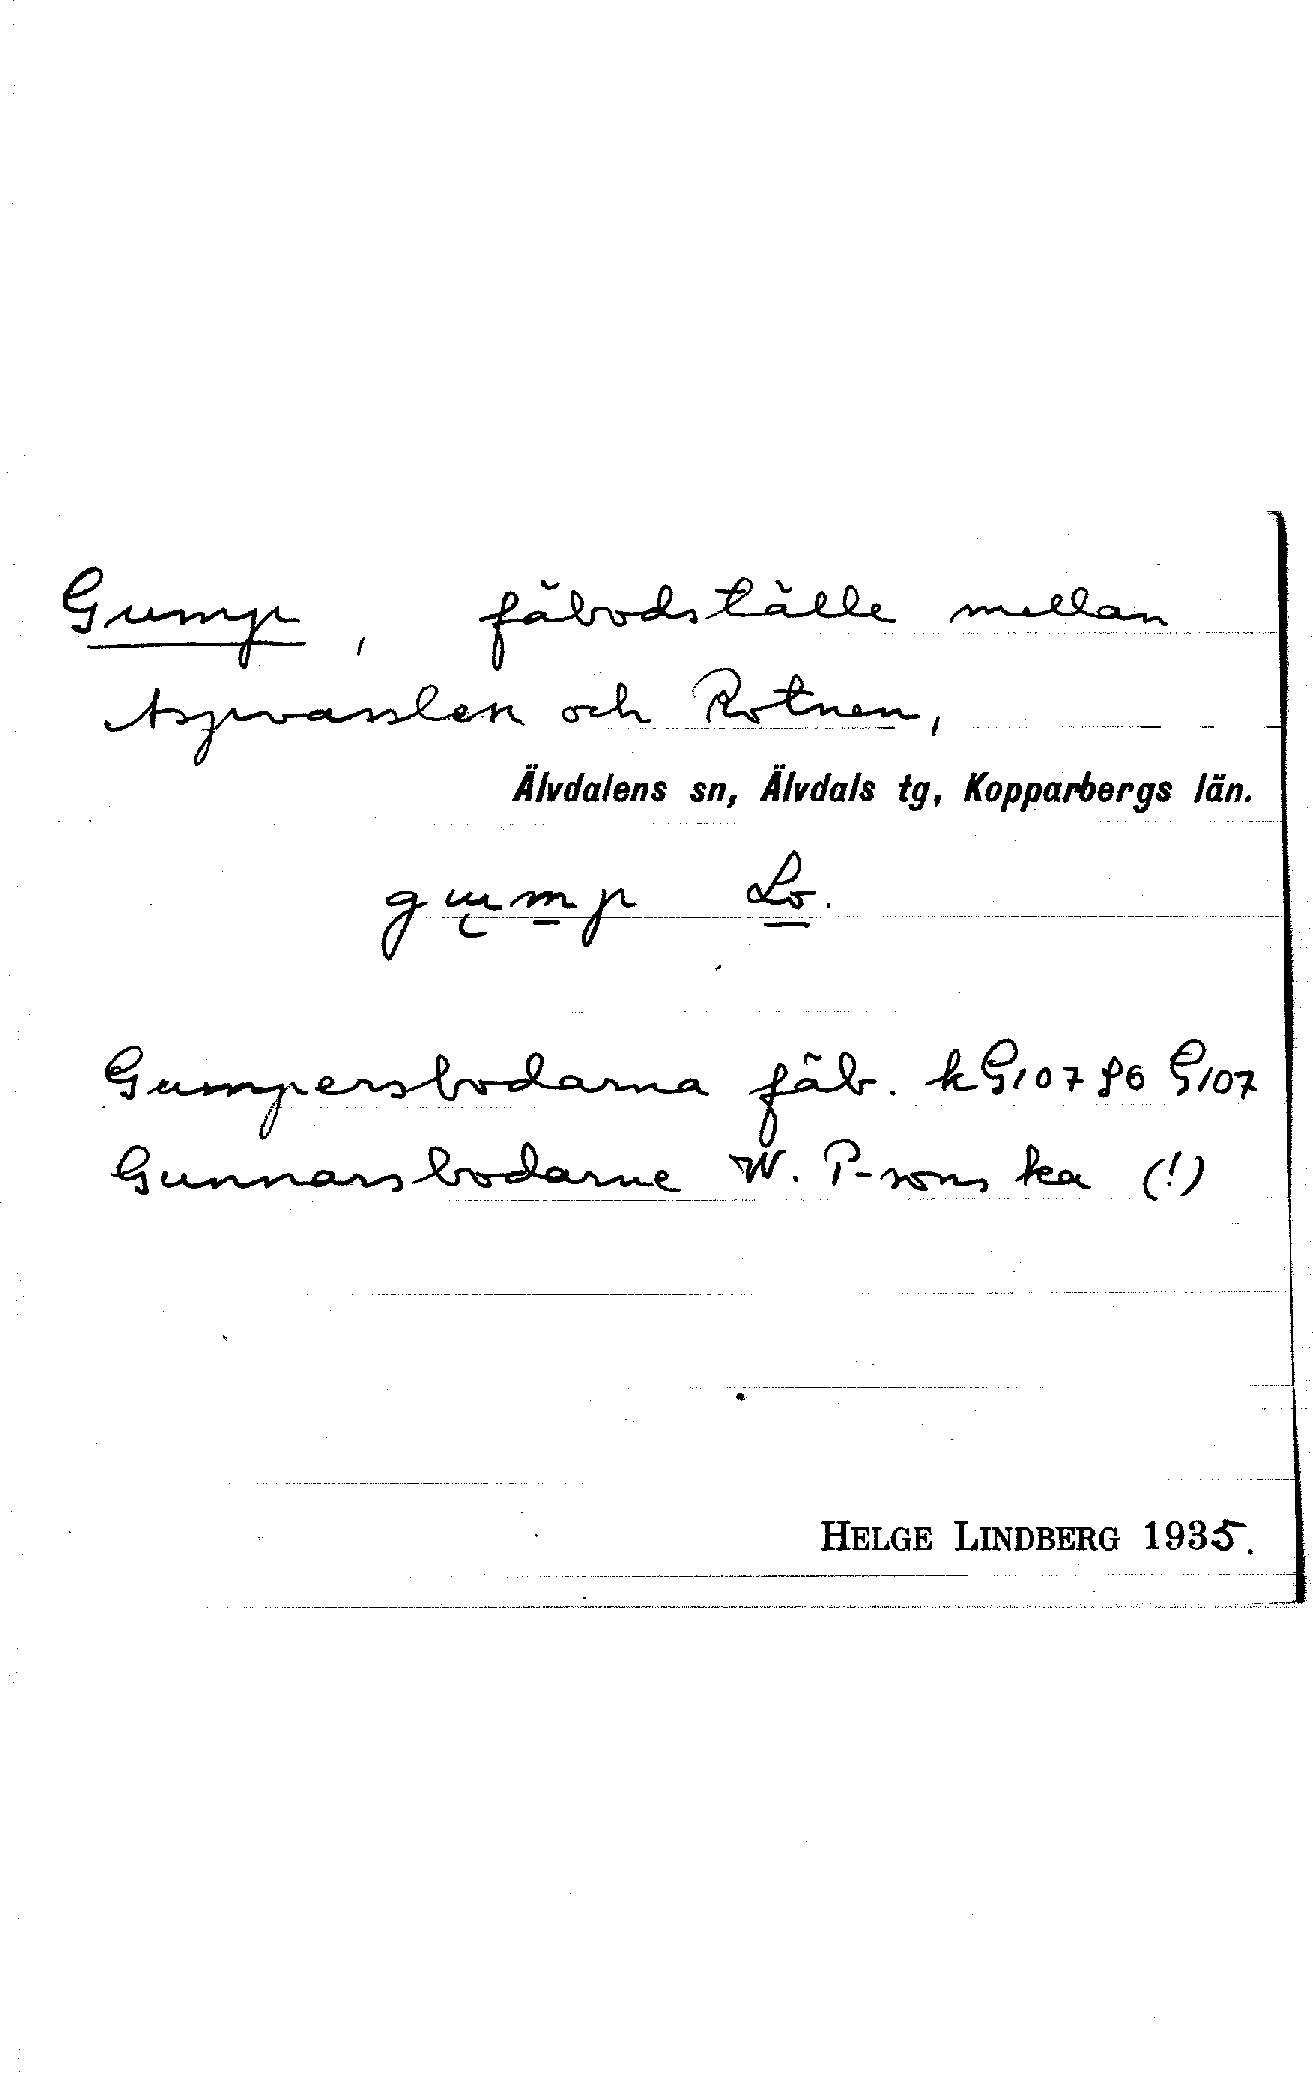 Gump, fäbodställe mellan
Aspvasslen och Rotnen,
Älvdalens sn, Älvdals tg, Kopparbergs län.
gump Lo.
Gumpersbodarna fäb. kG107 f6 G107
Gunnarsbodarne W. P-sons ka (!)
HELGE LINDBERG 1935.